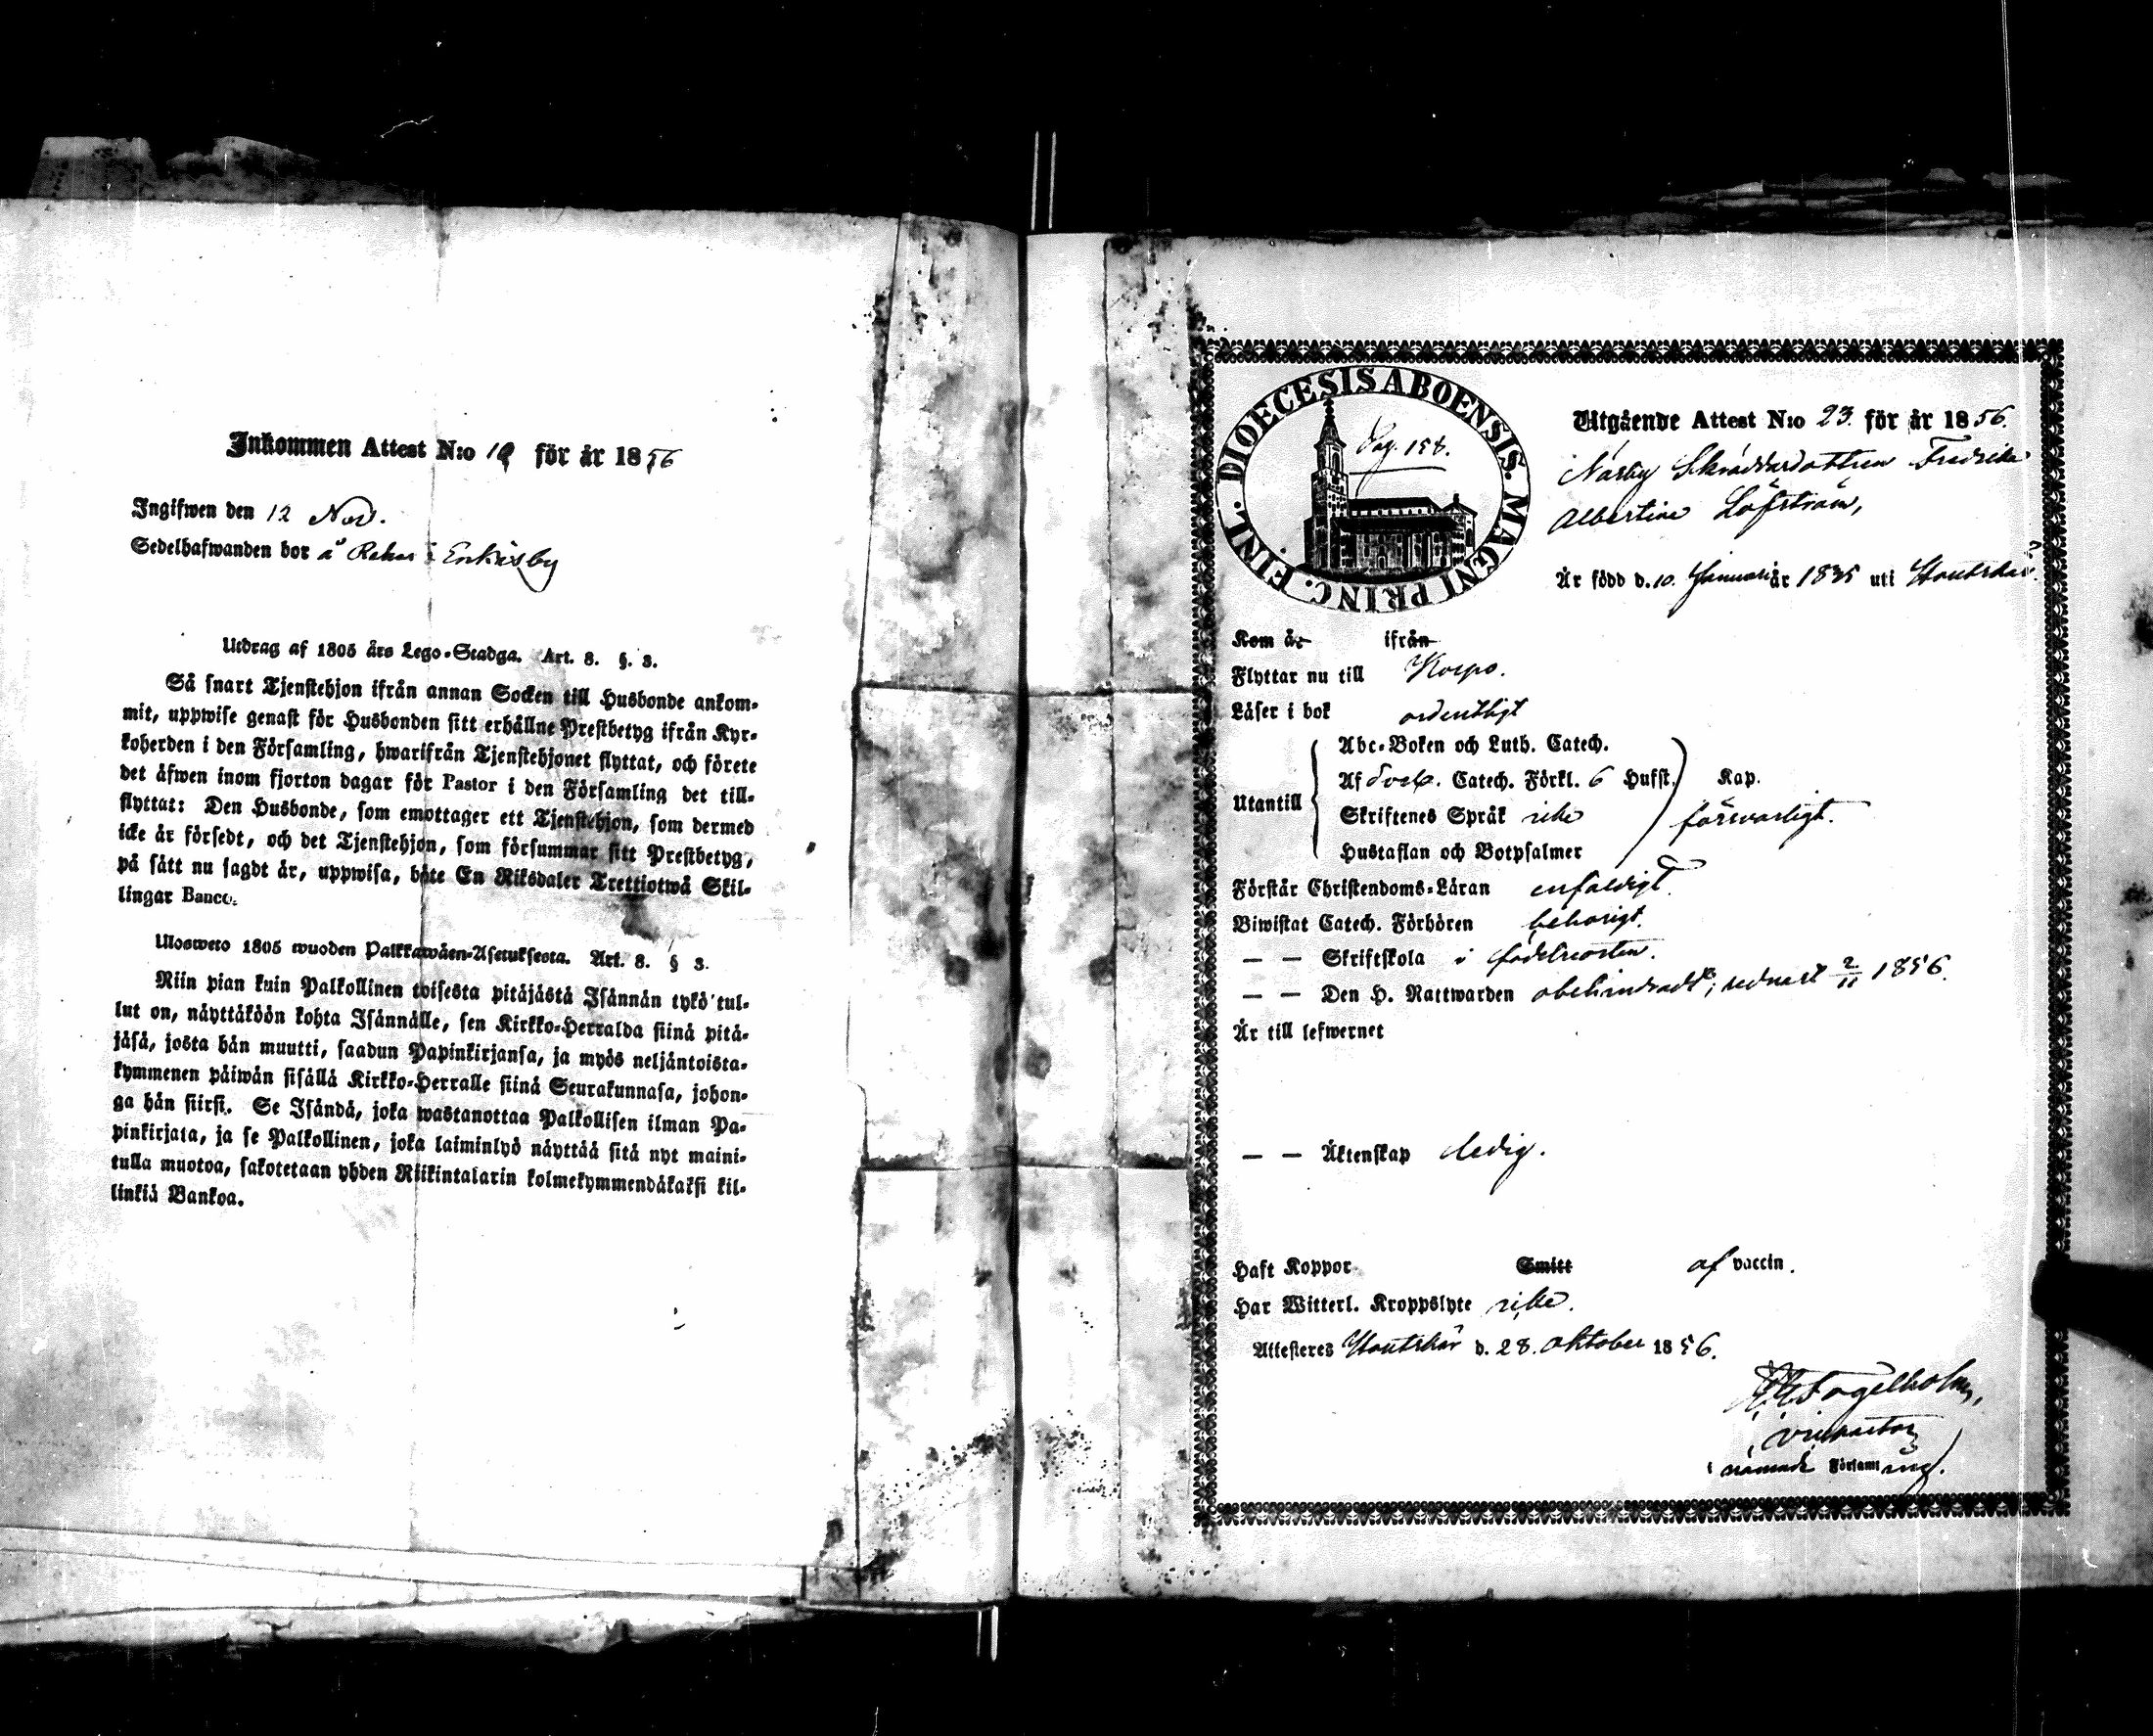 Inkommen Attest N:o 19 för år 1856
Ingifwen den 12 Nov.
Sedelhafwanden bor å Rehn i Enkisby
Utdrag af 1805 års Lego-Stadga. Art. 8. §. 3.
Så snart Tjenstehjon ifrån annan Socken till Husbonde ankom-
mit, uppwise genast för Husbonden sitt erhållne Prestbetyg ifrån Kyr-
koherden i den Församling, hwarifrån Tjenstehjonet flyttat, och förete
det äfwen inom fjorton dagar för Pastor i den Församling det till-
flyttat: Den Husbonde, som emottager ett Tjenstehjon, som dermed
icke är försedt, och det Tjenstehjon, som försummar sitt Prestbetyg,
på sätt nu sagdt är, uppwisa, böte En Riksdaler Trettiotwå Skil-
lingar Banco.
Ulosweto 1805 wuoden Palkkawäen-Asetuksesta. Art. 8. § 3.
Niin pian kuin Palkollinen toisesta pitäjästä Isännän tykö tul-
lut on, näyttäköön kohta Isännälle, sen Kirkko-Herralda siinä pitä-
jäsä, josta hän muutti, saadun Papinkirjansa, ja myös neljäntoista-
kymmenen päiwän sisällä Kirkko-Herralle siinä Seurakunnasa, johon-
ga hän siirsi. Se Isändä, joka wastanottaa Palkollisen ilman Pa-
pinkirjata, ja se Palkollinen, joka laiminlyö näyttää sitä nyt maini-
tulla muotoa, sakotetaan yhden Riikintalarin kolmekymmendäkaksi kil-
linkiä Bankoa.
DIOECESIS ABOENSIS. MAGNI PRINC. FINL.
Pag. 158.
Utgående Attest N:o 23. för år 1856.
Närby Skräddardottren Fredrika
Albertina Löfström,
Är född d. 10. Januari år 1835 uti Houtskär.
Kom år ifrån
Flyttar nu till Korpo.
Läser i bok ordentligt
Abc-Boken och Luth. Catech.
Af Sveb. Catech. Förkl. 6 Hufst. Kap.
Utantill
Skriftenes Språk icke försvarligt.
Hustaflan och Botpsalmer
Förstår Christendoms-Läran enfaldigt.
Biwistat Catech. Förhören behörigt.
— — Skriftskola i födelseorten.
— — Den H. Nattwarden obehindradt; sednast 2/11 1856.
Är till lefwernet
— — Äktenskap ledig.
Haft Koppor Smitt af vaccin.
Har Witterl. Kroppslyte icke.
Attesteres Houtskär d. 28. Oktober 1856.
Fogelholm,
Vicepastor
i nämnde Församling.